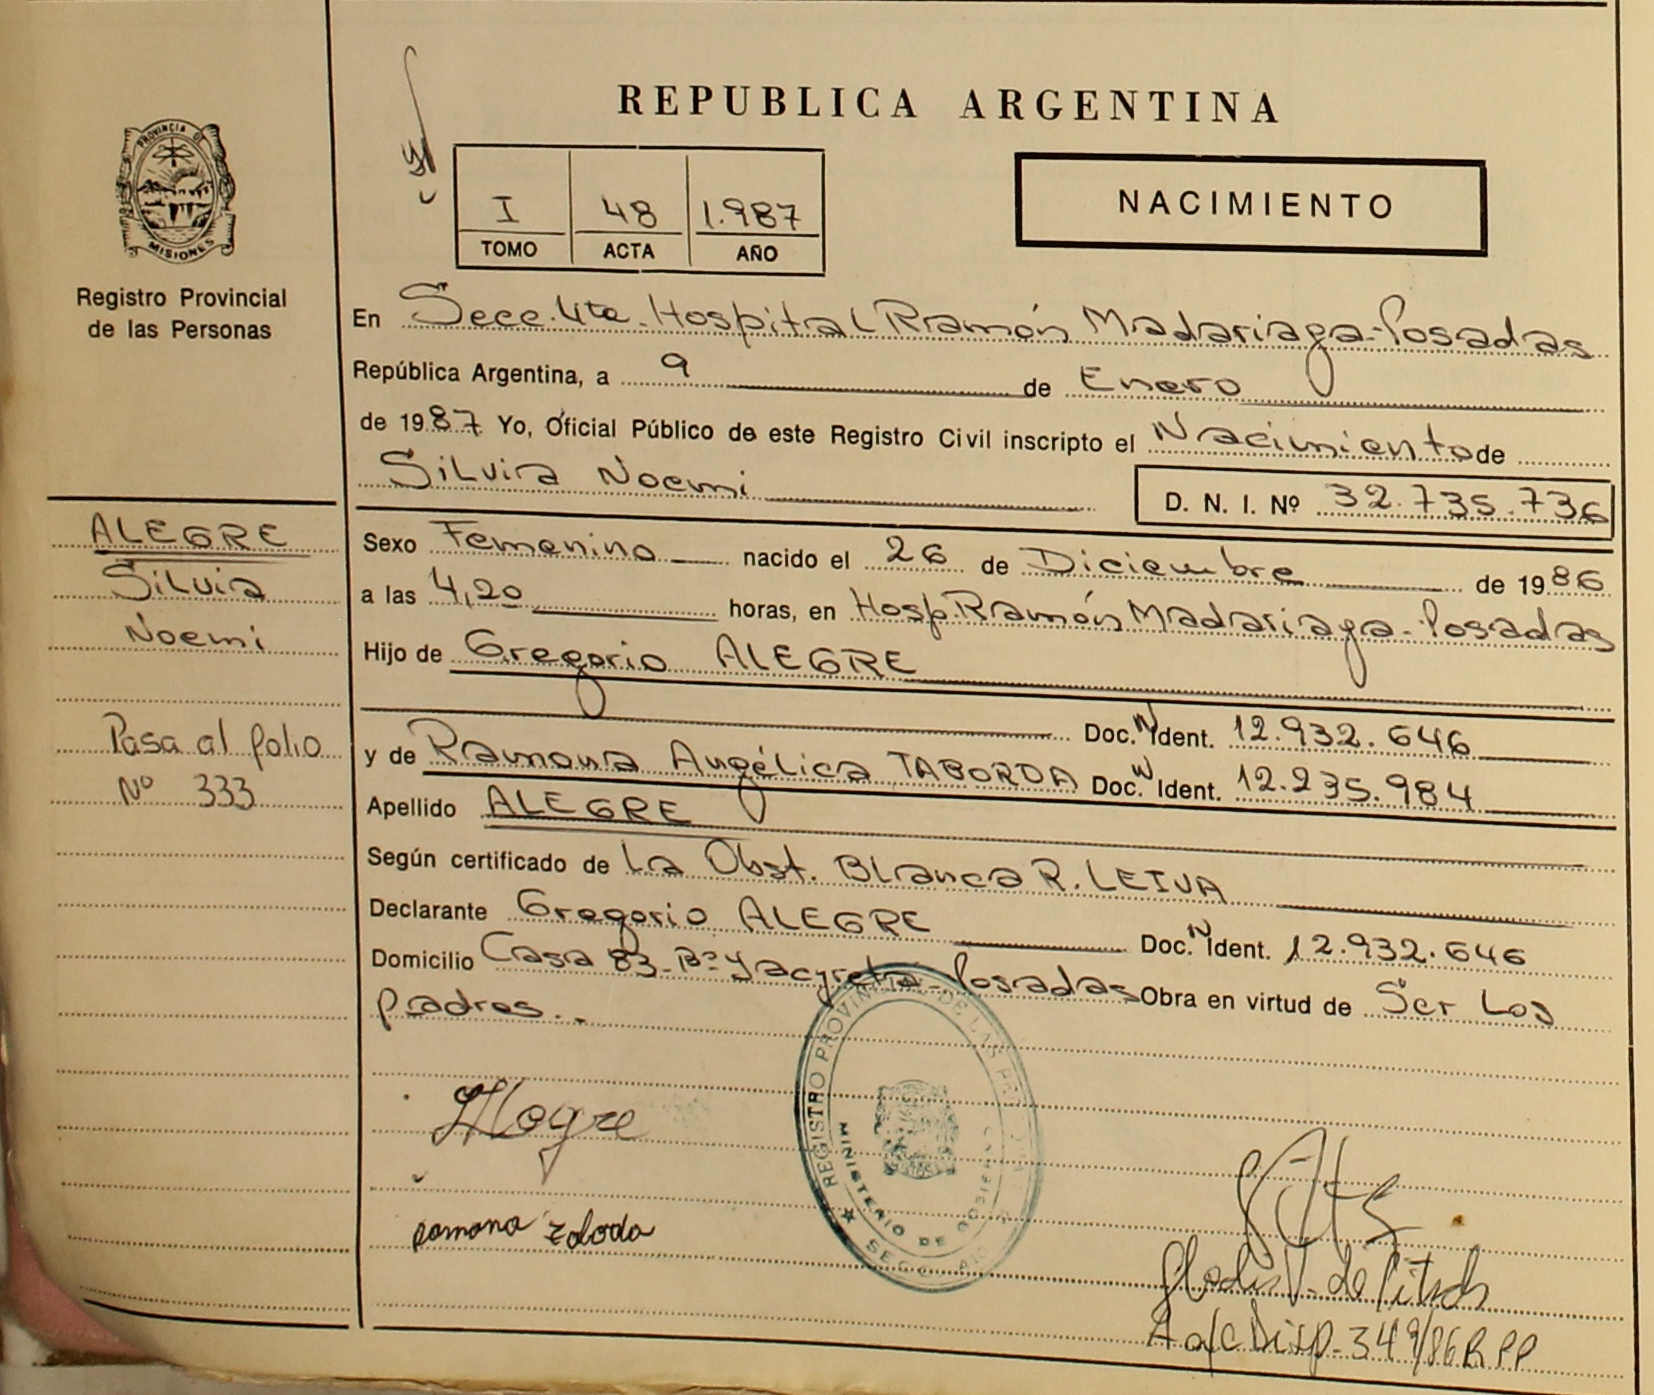 PROVINCIA DE
MISIONES
Registro Provincial
de las Personas
ALEGRE
Silvia
Noemi
Pasa al folio
Nº 333
REPUBLICA ARGENTINA
I 48 1.987
TOMO ACTA AÑO
NACIMIENTO
En Secc. 4ta. Hospital Ramón Madariaga-Posadas
República Argentina, a 9 de Enero
de 1987 Yo, Oficial Público de este Registro Civil inscripto el Nacimiento de
Silvia Noemi D. N. I. Nº 32.735.736
Sexo Femenino nacido el 26 de Diciembre de 1986
a las 4,20 horas, en Hosp. Ramón Madariaga-Posadas
Hijo de Gregorio ALEGRE
Doc. N Ident. 12.932.646
y de Ramona Angélica TABORDA Doc. N Ident. 12.235.984
Apellido ALEGRE
Según certificado de La Obst. Blanca R. LEIVA
Declarante Gregorio ALEGRE Doc. N Ident. 12.932.646
Domicilio Casa 83-Bº Yacyreta-Posadas Obra en virtud de Ser Los
padres..
REGISTRO PROVINCIAL DE LAS
MINISTERIO DE GOBIERNO
Alegre
Ramona
A a/c Disp-349/86 RPP